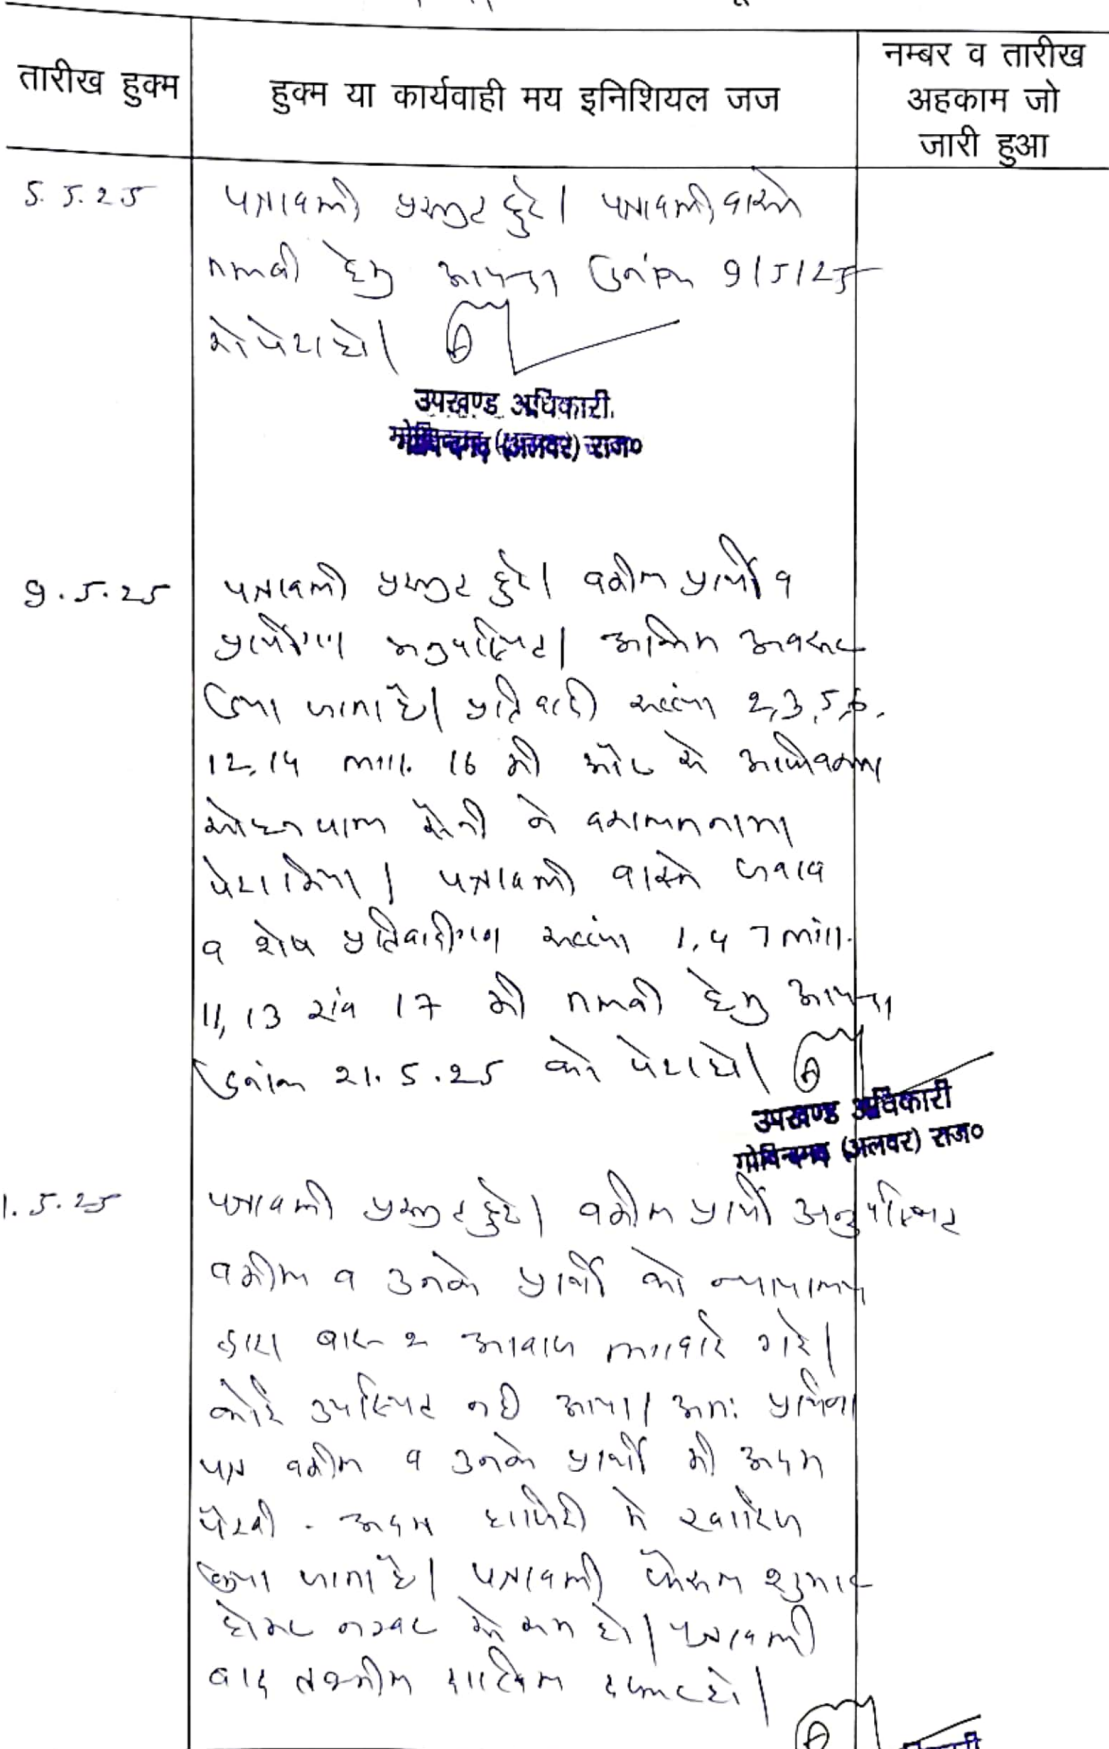 तारीख हुक्म
हुक्म या कार्यवाही मय इनिशियल जज
नम्बर व तारीख
अहकाम जो
जारी हुआ
5.5.25
पत्रावली प्रस्तुत हुई। पत्रावली वास्ते
तलबी हेतु आयन्दा दिनांक 9/5/25
को पेश हो।
उपखण्ड अधिकारी
(अलवर) राज०
9.5.25
पत्रावली प्रस्तुत हुई। वकील प्रार्थी व
प्रार्थीगण अनुपस्थित। अन्तिम अवसर
दिया जाता है। प्रतिवादी संख्या 2,3,5,6,
12,14 लगा. 16 की ओर से अभिभाषक
मोहन पाल सैनी ने वकालतनामा
पेश किया। पत्रावली वास्ते जवाब
व शेष प्रतिवादीगण संख्या 1,4 7 लगा.
11, 13 एवं 17 की तलबी हेतु आयन्दा
दिनांक 21.5.25 को पेश हो।
उपखण्ड अधिकारी
(अलवर) राज०
1.5.25
पत्रावली प्रस्तुत हुई। वकील प्रार्थी अनुपस्थित
वकील व उनके प्रार्थी को न्यायालय
द्वारा बार-2 आवाज लगवाई गई।
कोई उपस्थित नही आया। अतः प्रार्थना
पत्र वकील व उनके प्रार्थी की अदम
पैरवी - अदम हाजिरी मे खारिज
किया जाता है। पत्रावली फैसल शुमार
होकर नम्बर से कम हो। पत्रावली
बाद तकमील दाखिल दफ्तर हो।